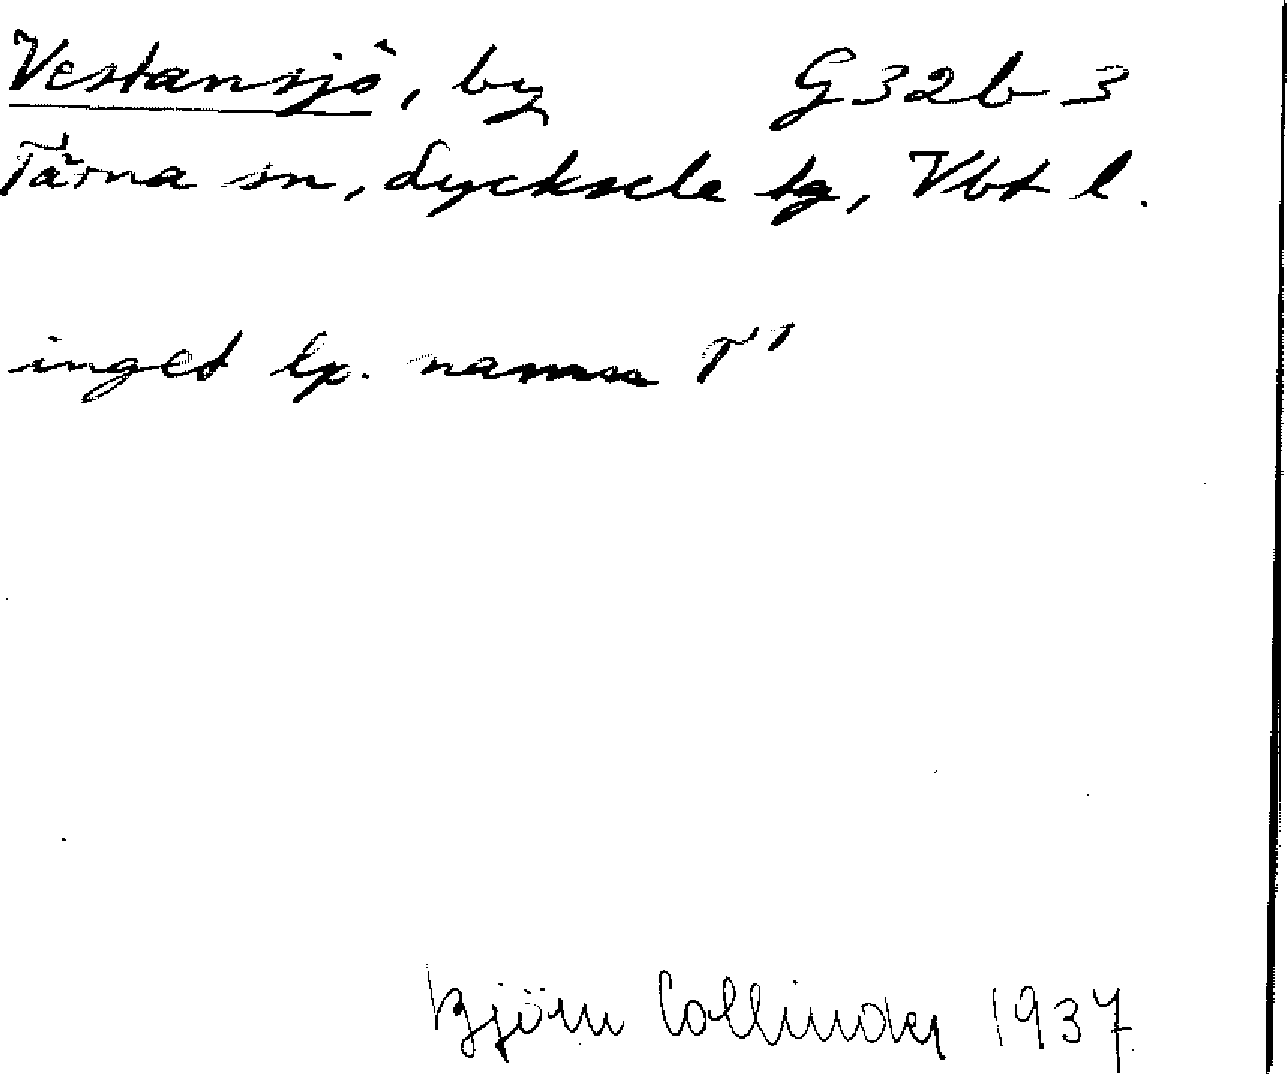 Vestansjö, by G32b3
Tärna sn, Lycksele tg, Vbt l.
inget lp. namn T'
Björn Collinder 1937